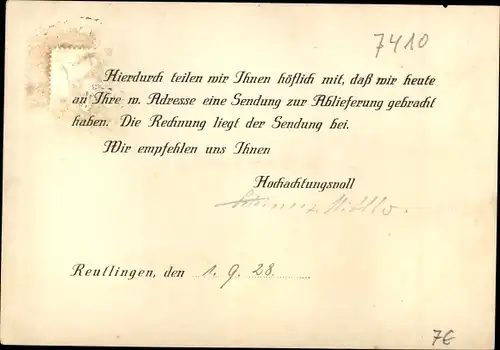 7410
Hierdurch teilen wir Ihnen höflich mit, daß wir heute
an Ihre w. Adresse eine Sendung zur Ablieferung gebracht
haben. Die Rechnung liegt der Sendung bei.
Wir empfehlen uns Ihnen
Hochachtungsvoll
Reutlingen, den 1. 9. 28.
7€